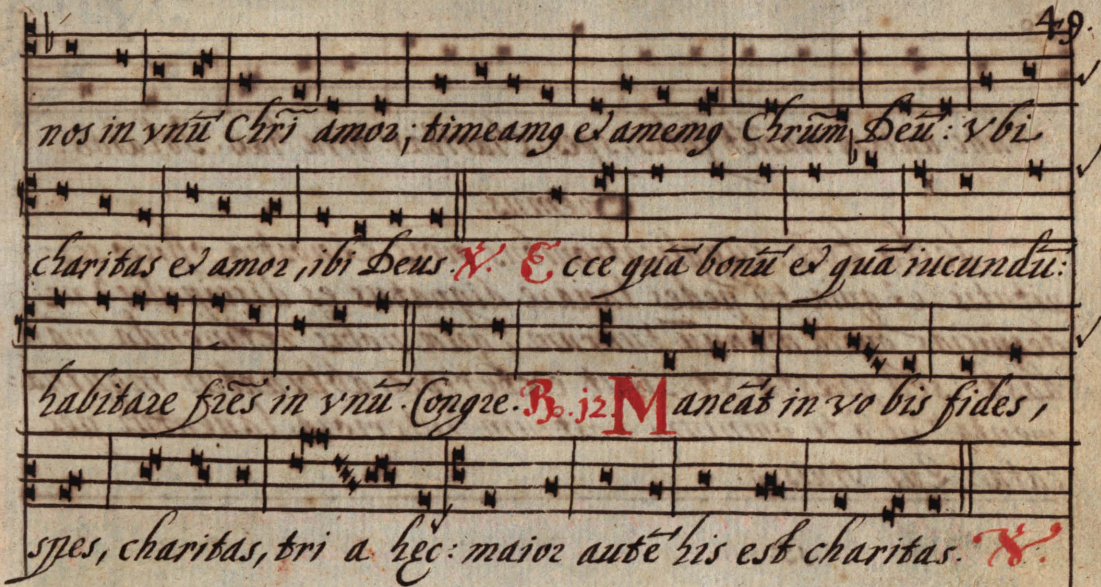 49.
nos in vnū Chrī amor; timeamꝯ et amemꝯ Chrūm Deū: vbi
charitas et amor, ibi Deus. ℣. Ecce quā bonū et quā iucundū:
habitare frēs in vnū. Congre. ℟. j2. Maneāt in vobis fides,
spes, charitas, tria hęc: maior autē his est charitas. ℣.